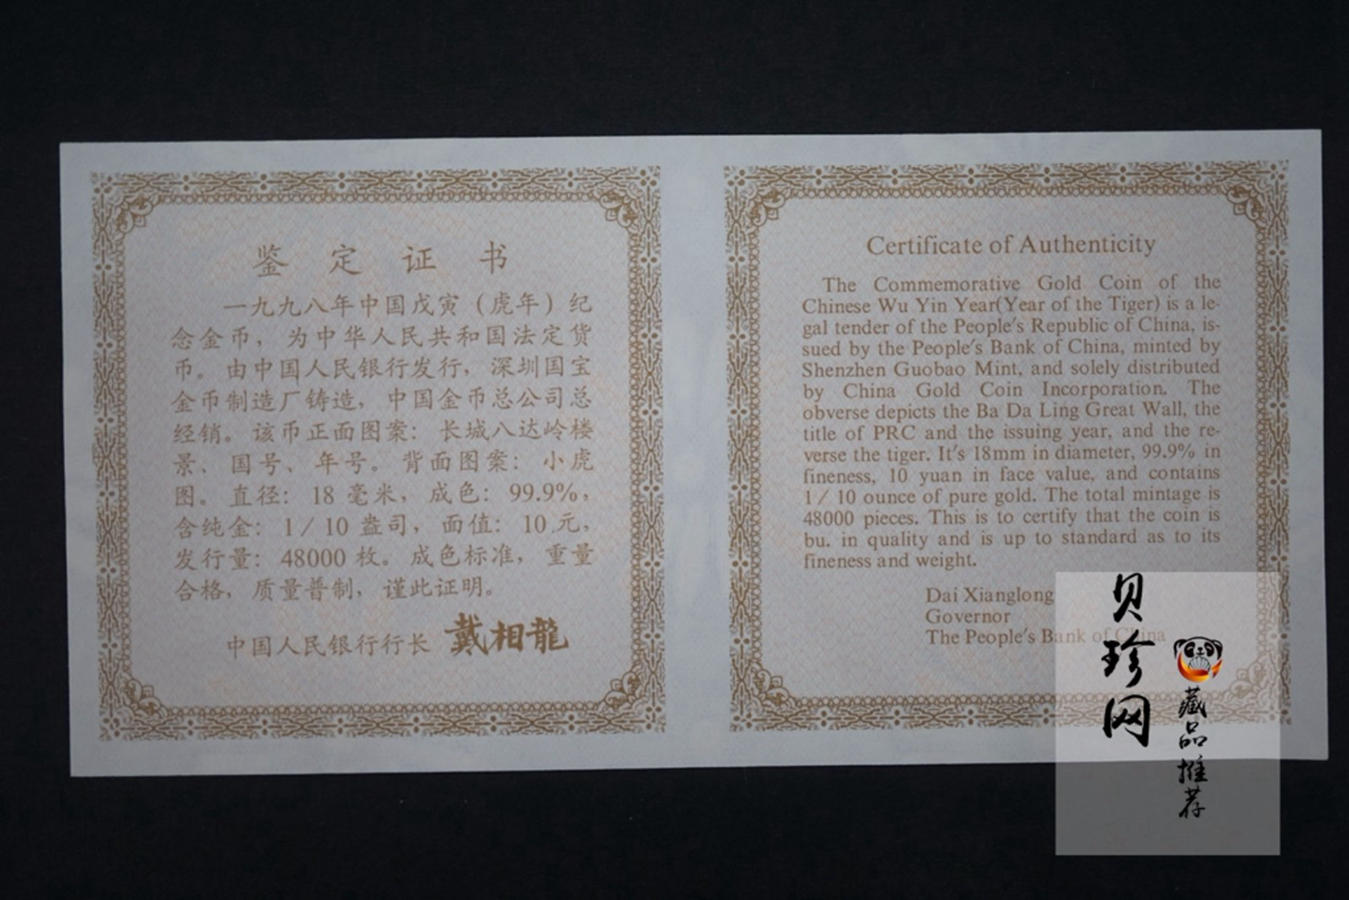 鉴定证书
一九九八年中国戊寅（虎年）纪
念金币，为中华人民共和国法定货
币。由中国人民银行发行，深圳国宝
金币制造厂铸造，中国金币总公司总
经销。该币正面图案：长城八达岭楼
景、国号、年号。背面图案：小虎
图。直径：18毫米，成色：99.9%，
含纯金：1/10盎司，面值：10元，
发行量：48000枚。成色标准，重量
合格，质量普制，谨此证明。
中国人民银行行长 戴相龍
Certificate of Authenticity
The Commemorative Gold Coin of the
Chinese Wu Yin Year(Year of the Tiger) is a le-
gal tender of the People's Republic of China, is-
sued by the People's Bank of China, minted by
Shenzhen Guobao Mint, and solely distributed
by China Gold Coin Incorporation. The
obverse depicts the Ba Da Ling Great Wall, the
title of PRC and the issuing year, and the re-
verse the tiger. It's 18mm in diameter, 99.9% in
fineness, 10 yuan in face value, and contains
1/10 ounce of pure gold. The total mintage is
48000 pieces. This is to certify that the coin is
bu. in quality and is up to standard as to its
fineness and weight.
Dai Xianglong
Governor
The People's Bank of China
贝珍网
藏品推荐